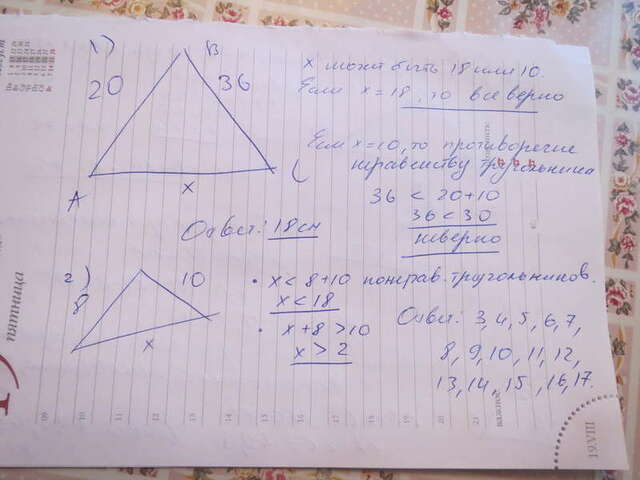 1)
B
20
36
A
x
C
x может быть 18 или 10.
Если x = 18, то все верно
Если x=10, то противоречие
неравенству треугольника
36 < 20+10
36 < 30
неверно
Ответ: 18 см
2)
8
10
x
• x < 8+10 по нерав. треугольников.
x < 18
• x + 8 > 10
x > 2
Ответ: 3, 4, 5, 6, 7,
8, 9, 10, 11, 12,
13, 14, 15, 16, 17.
пятница
09 10 11 12 13 14 15 16 17 18 19 20 21
важное
19.VIII